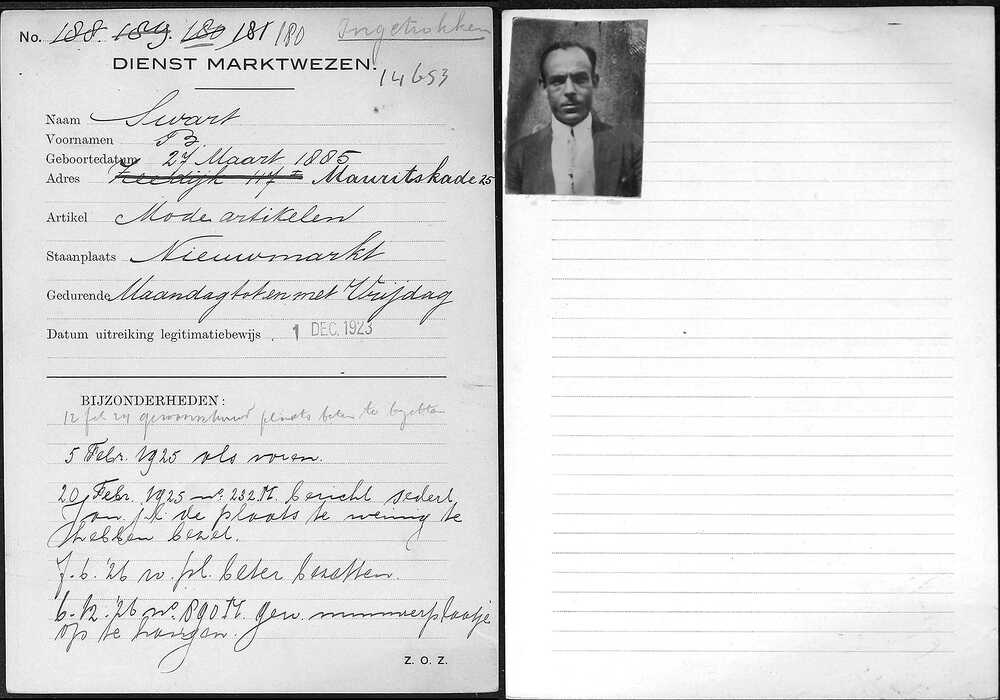 No. 188. 189. 180 181 180 Ingetrokken
DIENST MARKTWEZEN.
14653
Naam Swart
Voornamen B.
Geboortedatum 27 Maart 1885
Adres Zeedijk 117 I Mauritskade 25
Artikel Mode artikelen
Staanplaats Nieuwmarkt
Gedurende Maandag tot en met Vrijdag
Datum uitreiking legitimatiebewijs . 1 DEC. 1923
BIJZONDERHEDEN:
12 feb 24 gewaarschuwd plaats beter te bezetten
5 Febr. 1925 als voren.
20 Febr. 1925 no. 232 M. bericht sedert
Jan. j.l. de plaats te weinig te
hebben bezet.
7.6.'26 w. pl. beter bezetten.
6.12.'26 no. 890 M. gew. nummerplaatje
op te hangen.
Z. O. Z.